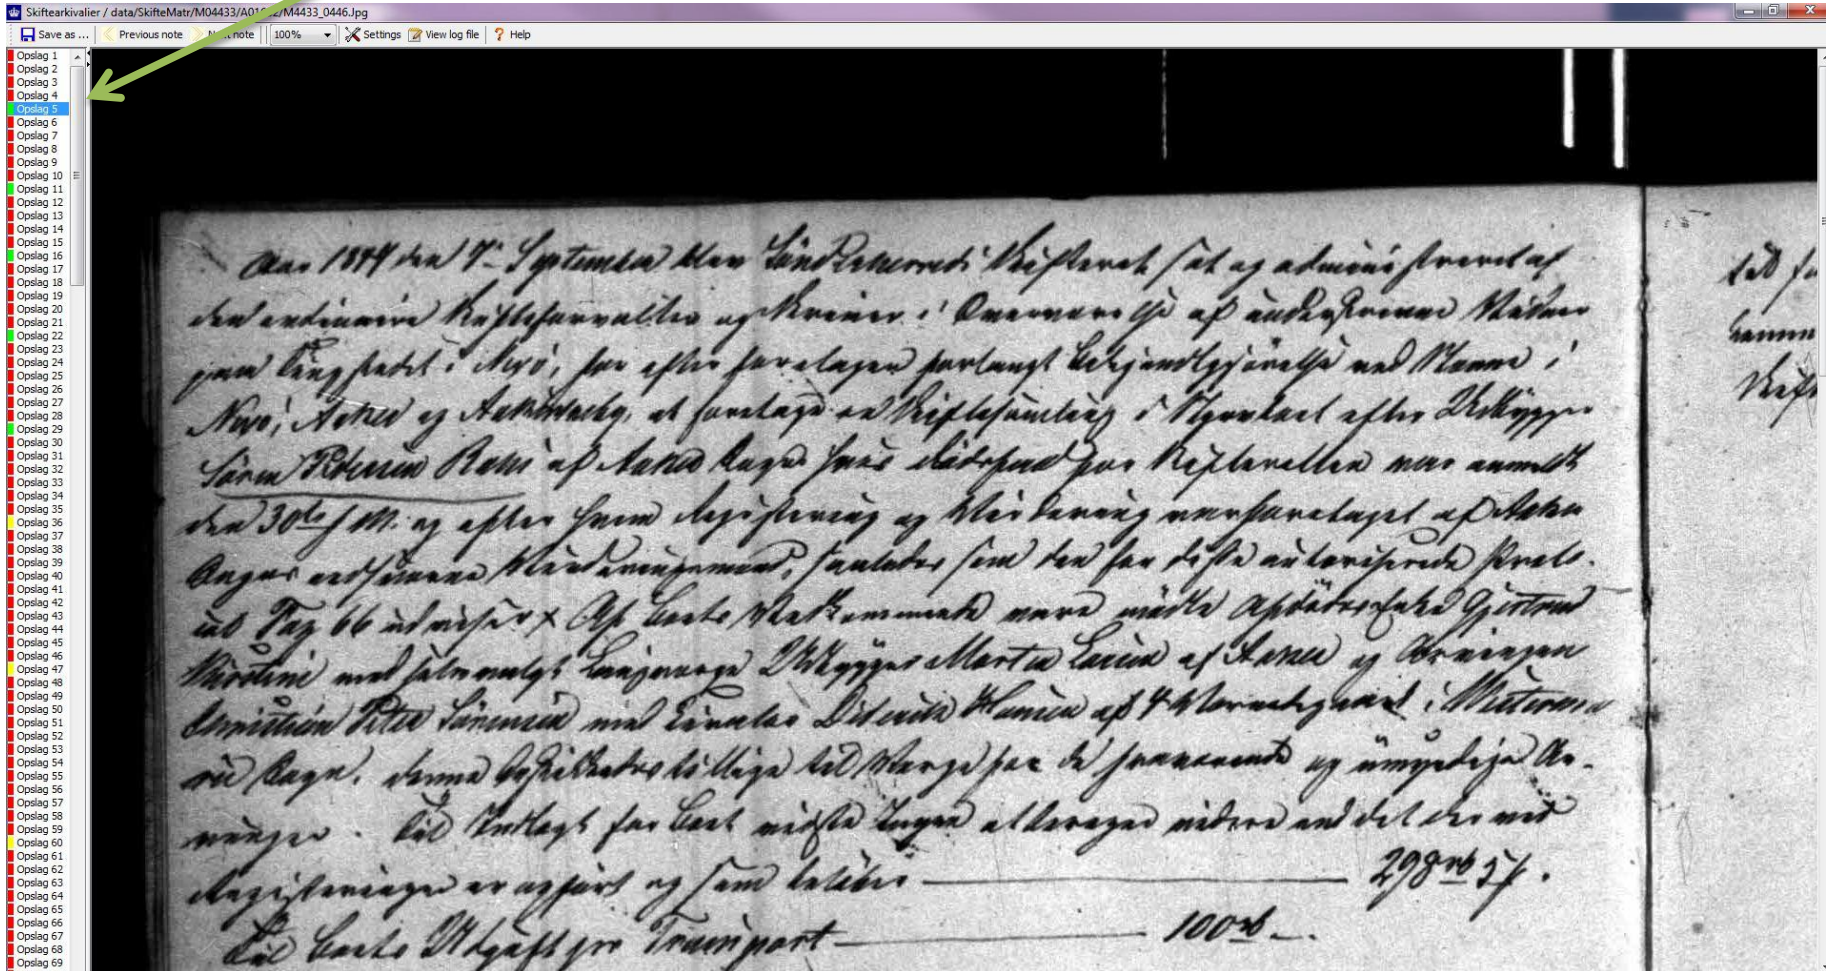 Skiftearkivalier / data/SkifteMatr/M04433/A01 2/M4433_0446.Jpg
Save as ... Previous note note 100% Settings View log file ? Help
Opslag 1
Opslag 2
Opslag 3
Opslag 4
Opslag 5
Opslag 6
Opslag 7
Opslag 8
Opslag 9
Opslag 10
Opslag 11
Opslag 12
Opslag 13
Opslag 14
Opslag 15
Opslag 16
Opslag 17
Opslag 18
Opslag 19
Opslag 20
Opslag 21
Opslag 22
Opslag 23
Opslag 24
Opslag 25
Opslag 26
Opslag 27
Opslag 28
Opslag 29
Opslag 30
Opslag 31
Opslag 32
Opslag 33
Opslag 34
Opslag 35
Opslag 36
Opslag 37
Opslag 38
Opslag 39
Opslag 40
Opslag 41
Opslag 42
Opslag 43
Opslag 44
Opslag 45
Opslag 46
Opslag 47
Opslag 48
Opslag 49
Opslag 50
Opslag 51
Opslag 52
Opslag 53
Opslag 54
Opslag 55
Opslag 56
Opslag 57
Opslag 58
Opslag 59
Opslag 60
Opslag 61
Opslag 62
Opslag 63
Opslag 64
Opslag 65
Opslag 66
Opslag 67
Opslag 68
Opslag 69
den 7de September blev Skifteret sat og administreret af
den ordinaire Skifteforvalter og Skriver i Overværelse af underskrevne Vidner
paa Tingstedet i Nexö, for efter foretagen forlangt Bekjendtgjörelse ved Stævne i
Nexö, Aaker og Aakirkeby, at foretage en Skiftesamling i Sterboet efter Udbygger
Sören af Aaker Sogn hvis Dödsfald for Skifteretten var anmeldt
den 30te f. M. og efter hvem Registering og Vurdering var foretaget af Aaker
Sogns Vurderingsmænd, saaledes som den for disse autoriserede Proto-
col Pag 66 udviser x Af Boets Vedkommende vare mödte Afdödes Enke Gjertrud
Kirstine med selvvalgt Laugværge Udbygger Morten Larsen af Aaker og Arvingen
Christian Peter Sörensen med Curator Diderik Hansen af 4 Vornedegaard i
Sogn, denne beskikkedes tillige til Værge for de fraværende og umyndige Ar-
vinger. Til Indtægt for Boet vidste Ingen at beregne videre end det der ved
Registeringen er opfört og som belöber 298 rd
Til Boets Udgift pr Transport 100 rd